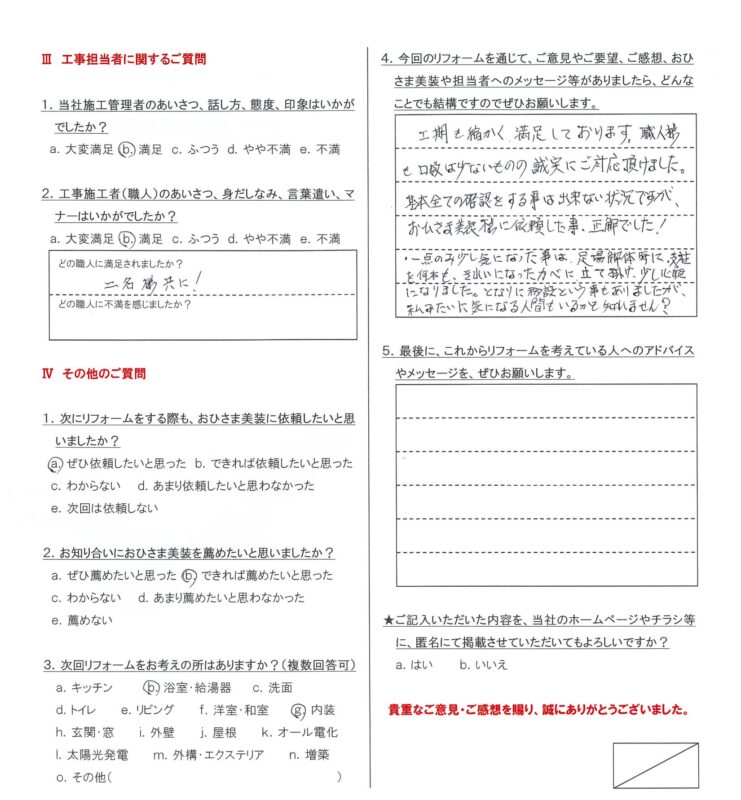 Ⅲ 工事担当者に関するご質問
1. 当社施工管理者のあいさつ、話し方、態度、印象はいかが
でしたか？
a. 大変満足 b. 満足 c. ふつう d. やや不満 e. 不満
2. 工事施工者(職人)のあいさつ、身だしなみ、言葉遣い、マ
ナーはいかがでしたか？
a. 大変満足 b. 満足 c. ふつう d. やや不満 e. 不満
どの職人に満足されましたか？
二名様共に！
どの職人に不満を感じましたか？
Ⅳ その他のご質問
1. 次にリフォームをする際も、おひさま美装に依頼したいと思
いましたか？
a. ぜひ依頼したいと思った b. できれば依頼したいと思った
c. わからない d. あまり依頼したいと思わなかった
e. 次回は依頼しない
2. お知り合いにおひさま美装を薦めたいと思いましたか？
a. ぜひ薦めたいと思った b. できれば薦めたいと思った
c. わからない d. あまり薦めたいと思わなかった
e. 薦めない
3. 次回リフォームをお考えの所はありますか？(複数回答可)
a. キッチン b. 浴室・給湯器 c. 洗面
d. トイレ e. リビング f. 洋室・和室 g. 内装
h. 玄関・窓 i. 外壁 j. 屋根 k. オール電化
l. 太陽光発電 m. 外構・エクステリア n. 増築
o. その他( )
4. 今回のリフォームを通じて、ご意見やご要望、ご感想、おひ
さま美装や担当者へのメッセージ等がありましたら、どんな
ことでも結構ですのでぜひお願いします。
工期も細かく、満足しております。職人様
も口数は少ないものの誠実にご対応頂けました。
基本全ての確認をする事は出来ない状況ですが、
おひさま美装様に依頼した事、正解でした！
・一点のみ少し気になった事は、足場解体時に、
を何本も、きれいになったカベに立てかけ、少し心配
になりました。となりに物置という事もありましたが、
私みたいに気になる人間もいるかも知れません？
5. 最後に、これからリフォームを考えている人へのアドバイス
やメッセージを、ぜひお願いします。
★ご記入いただいた内容を、当社のホームページやチラシ等
に、匿名にて掲載させていただいてもよろしいですか？
a. はい b. いいえ
貴重なご意見・ご感想を賜り、誠にありがとうございました。